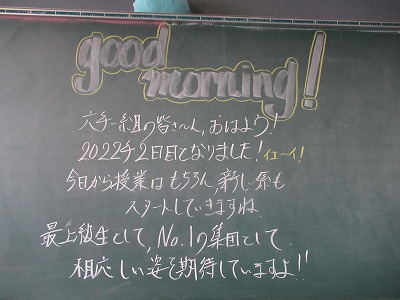 good
morning!
六年一組の皆さ〜ん、おはよう!
2022年2日目となりました!イェーイ!
今日から授業はもちろん、新しい係も
スタートしていきますね。
最上級生として、No.1の集団として
相応しい姿を期待していますよ!!